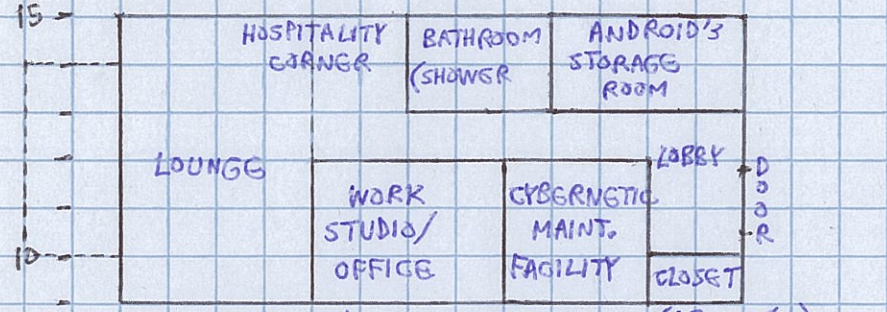 15
HOSPITALITY
CORNER
BATHROOM
(SHOWER
ANDROID'S
STORAGE
ROOM
LOUNGE
LOBBY
DOOR
WORK
STUDIO/
OFFICE
CYBERNETIC
MAINT.
FACILITY
CLOSET
10